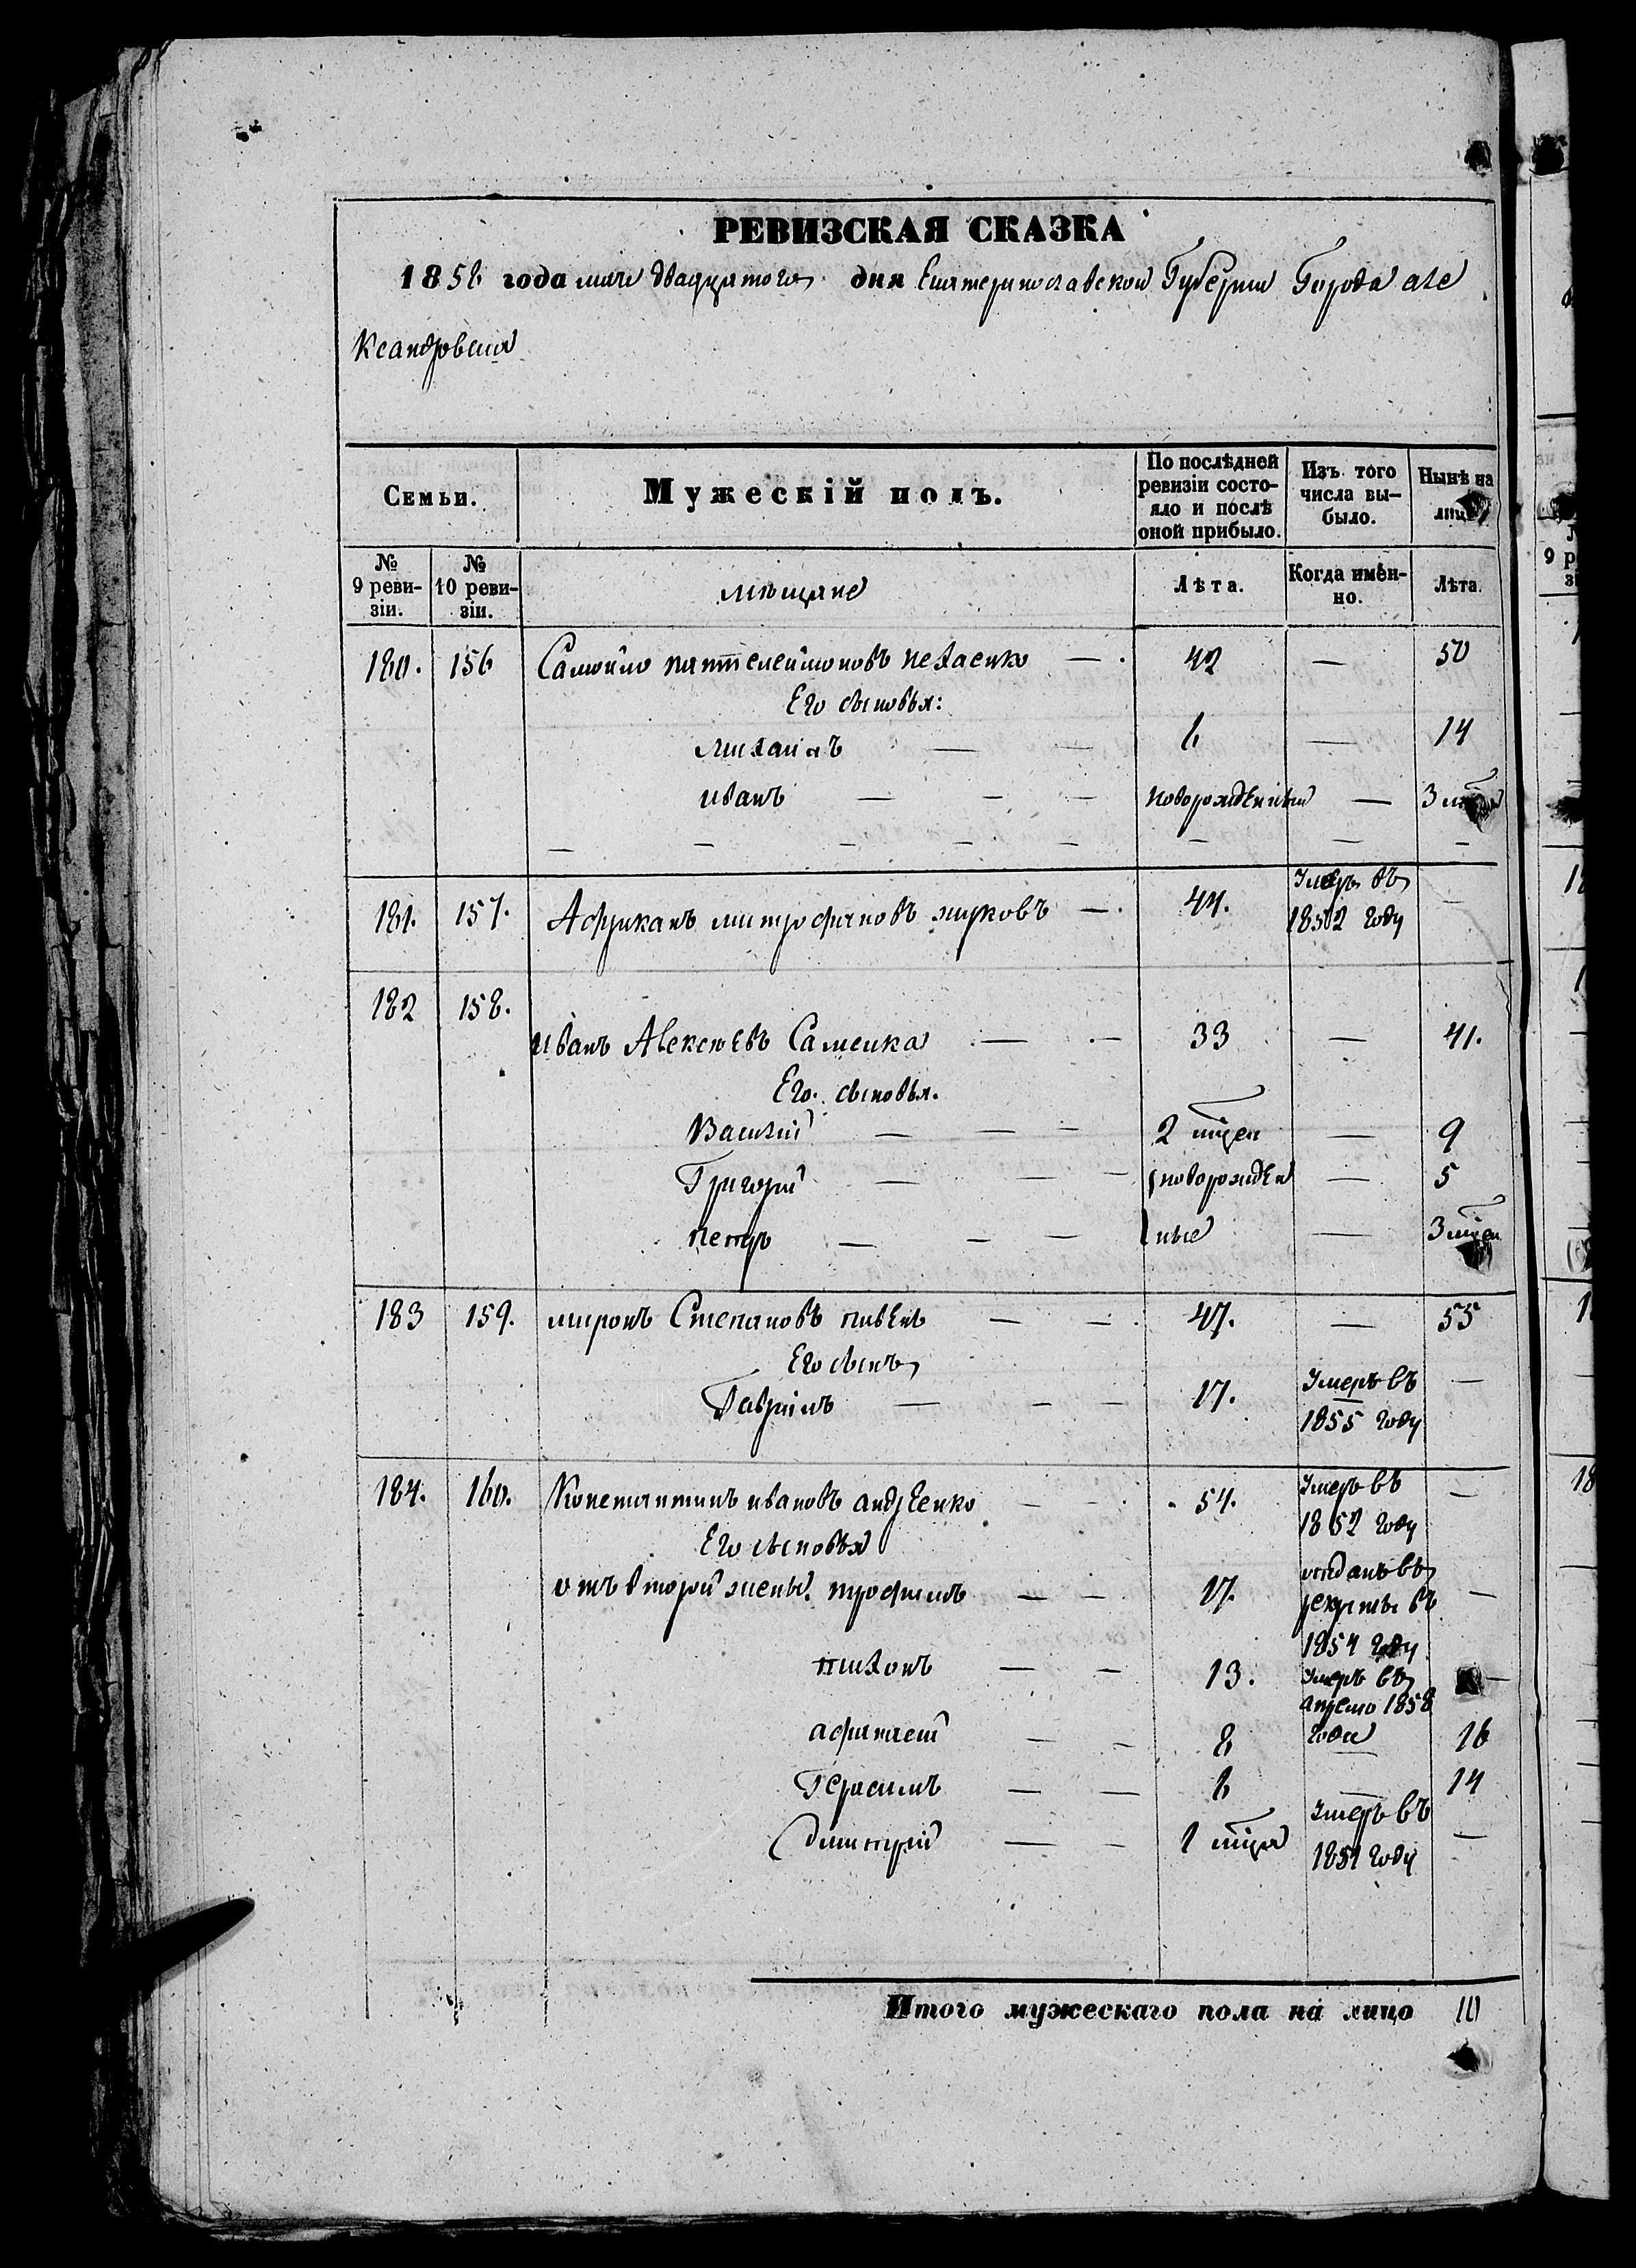 РЕВИЗСКАЯ СКАЗКА
1858 года мая двадцатого дня Екатеринославской Губерніи Города Але
ксандровска
Семьи. Мужескій полъ. По послѣдней ревизіи состо- яло и послѣ оной прибыло. Изъ того числа вы- было. Нынѣ на лицо
№ 9 реви- зіи. № 10 реви- зіи. мѣщане Лѣта. Когда имен- но. Лѣта.
180. 156 Самойло пантелеймоновъ нехаенко — 42 — 50
Его сыновья:
михаилъ — — 6 — 14
иванъ — — — новорожденный — 3
181. 157. Африканъ митрофановъ жуковъ — 44. Умеръ въ —
1852 году
182 158.
иванъ Алексѣевъ Саменка — — 33 — 41.
Его сыновья.
Василій — — — 2 мѣсец — 9
Григорій — — новорожден — 5
петръ — — — ные — 3 мѣсец
183 159. миронъ Степановъ пивень — — 47. — 55
Его сынъ
Гавріилъ — — — 17. Умеръ въ —
1855 году
184. 160. Константинъ ивановъ андреенко — — 54. Умеръ въ —
1852 году
Его сыновья
отъ второй жены. трофимъ — — 17. отданъ въ
рекруты въ —
1854 году
тихонъ — — 13. Умеръ въ —
апрелю 1858
афанасій — — 8 года 16
Герасимъ — — 6 — 14
дмитрій — — 1 мѣсяц Умеръ въ —
1851 году
Итого мужескаго пола на лицо 10